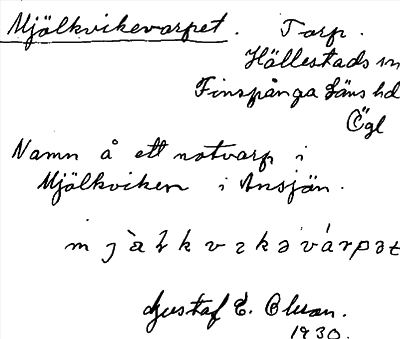 Mjölkvikevarpet. Torp.
Hällestads sn
Finspånga läns hd
Ögl
Namn å ett notvarp i
Mjölkviken i Ansjön.
Gustaf E. Olson.
1930.